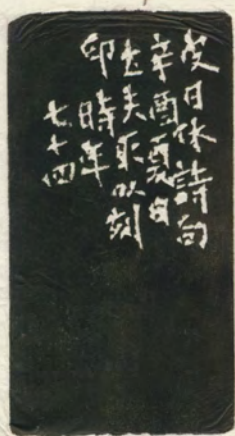 皮日休詩句
辛酉夏日
大夫取以刻
印時年
七十四